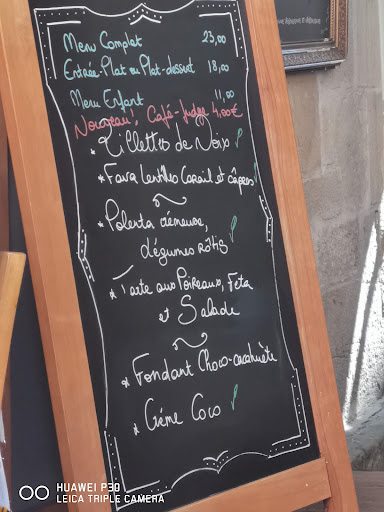 Menu Complet 23,00
Entrée-Plat ou Plat-dessert 18,00
Menu Enfant 11,00
Nouveau! Café- 4,80€
* Rillettes de Noix
* Fava lentilles Corail et câpres
* Polenta crémeuse,
légumes rôtis
* Tarte aux Poireaux, Feta
et Salade
* Fondant Choco-cacahuète
* Crème Coco
HUAWEI P30
LEICA TRIPLE CAMERA